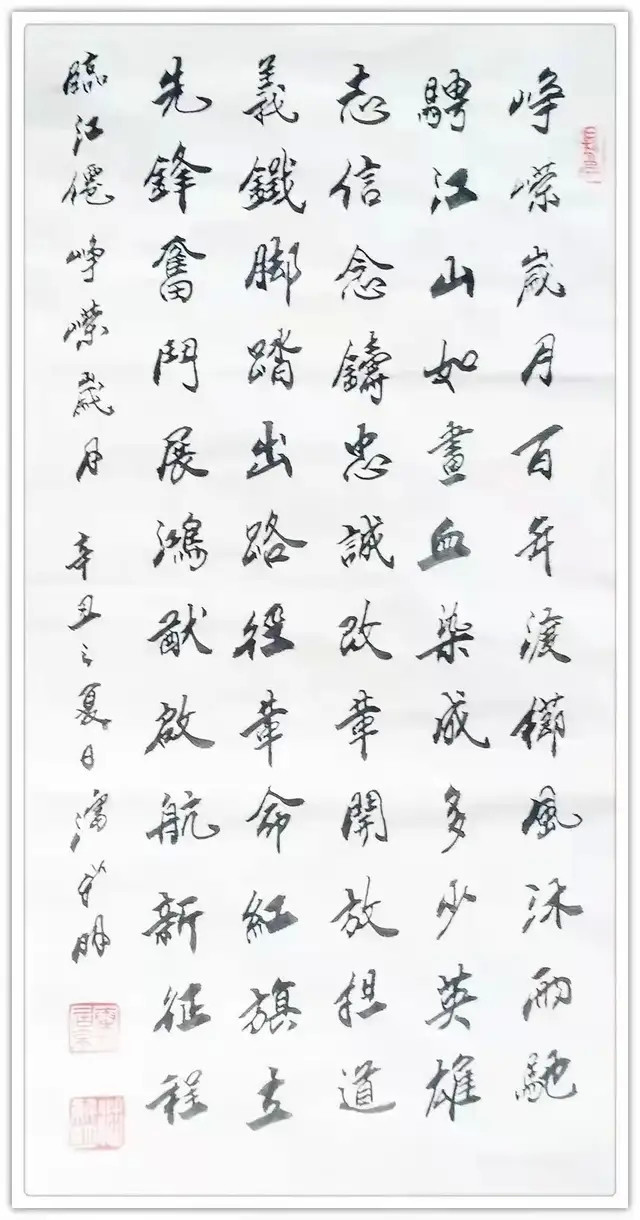 崢嶸歲月百年渡櫛風沐雨馳
騁江山如畫血染成多少英雄
志信念鑄忠誠改革開放担道
義鐵脚踏出路徑革命紅旗立
先鋒奮鬥展鴻猷啟航新征程
臨江僊 崢嶸歲月 辛丑之夏日 明